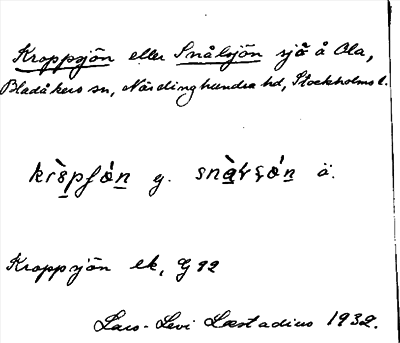 Kroppsjön eller Snålsjön sjö å Ola,
Bladåkers sn, Närdinghundra hd, Stockholms l.
y. ä.
Kroppsjön ek, G 92
Lars-Levi Læstadius 1932.